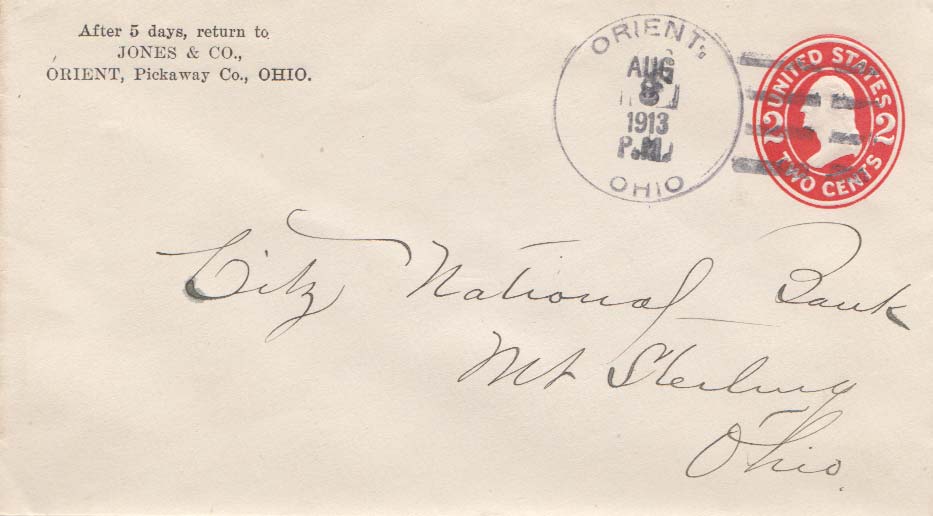 After 5 days, return to
JONES & CO.,
ORIENT, Pickaway Co., OHIO.
ORIENT,
AUG
1913
P.M.
OHIO
UNITED STATES
2 2
TWO CENTS
City National Bank
Mt Sterling
Ohio.